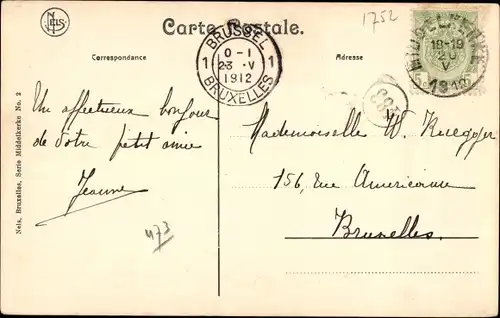 NELS
Carte Postale.
1752
Correspondance
Adresse
BRUSSEL
1 0-1 1
23 V
1912
BRUXELLES
MIDDELKERKE
18-19
20
V
1912
Un affectueux bonjour
de votre petit amie
Jeanne
Mademoiselle W. Ruegger
156, Rue Américaine
Bruxelles.
473
Nels, Bruxelles, Serie Middelkerke No. 2